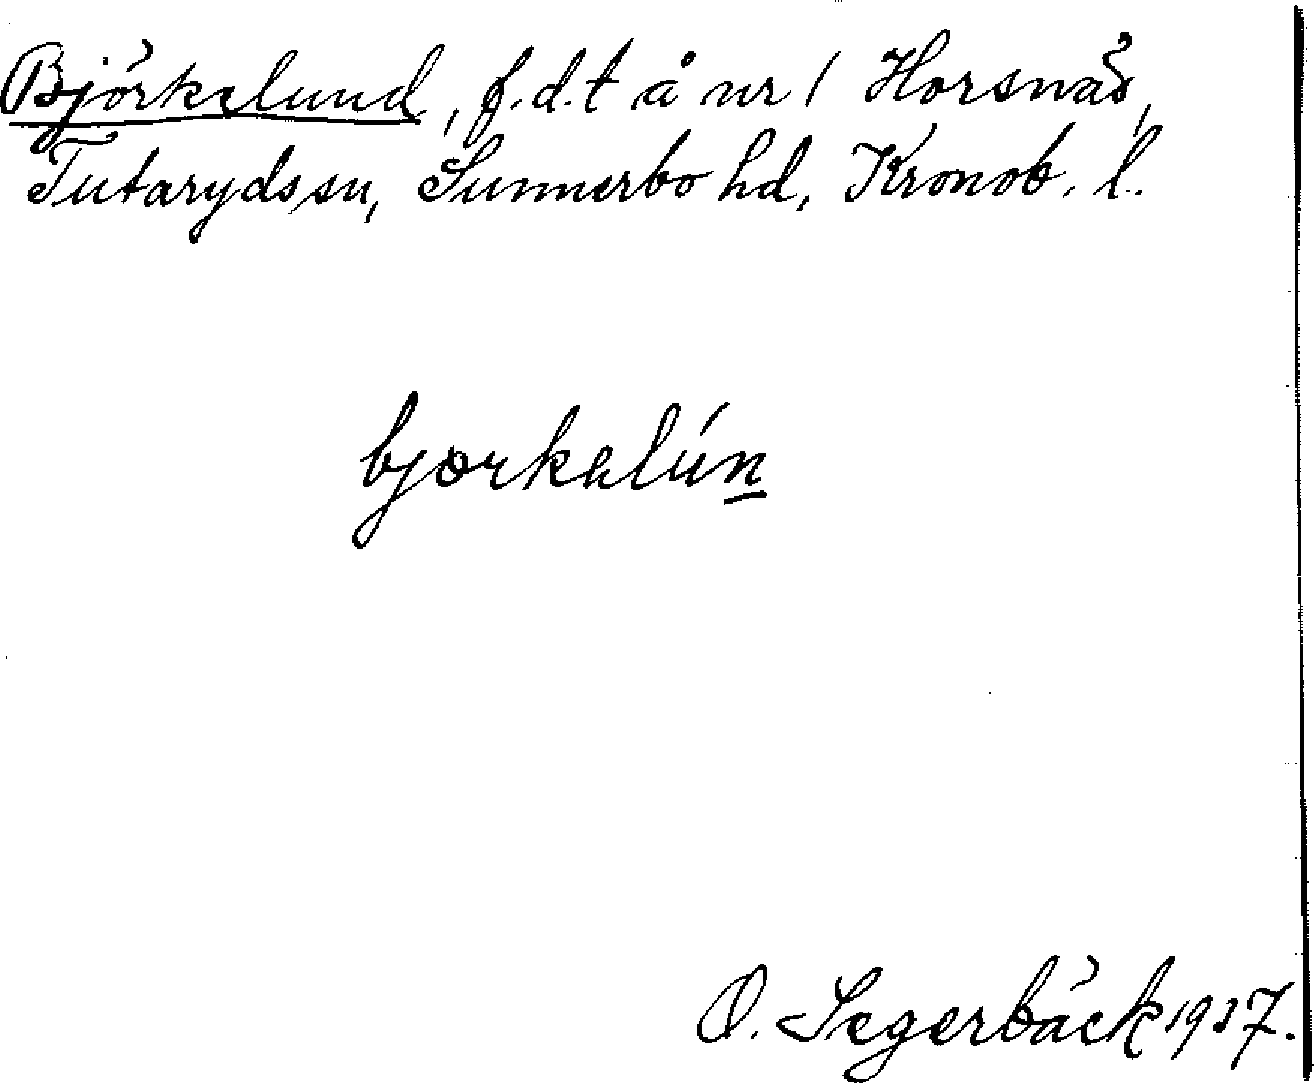 Björkelund, f.d.t å nr 1 Horsnäs,
Tutaryds sn, Sunnerbo hd, Kronob. l.
bjørkəlún̲
O. Segerbäck 1937.